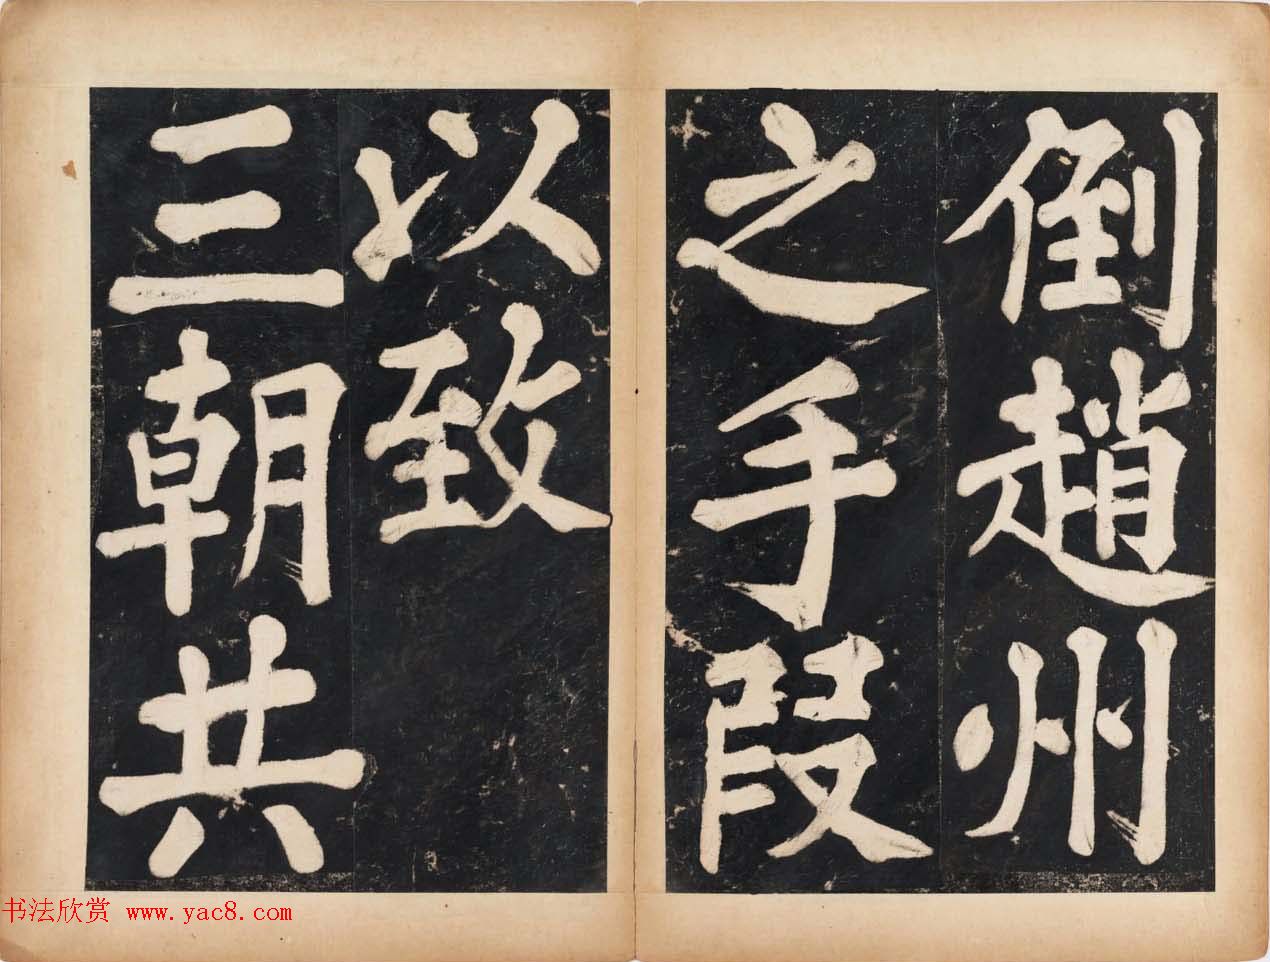 倒趙州
之手段
以致
三朝共
书法欣赏 www.yac8.com